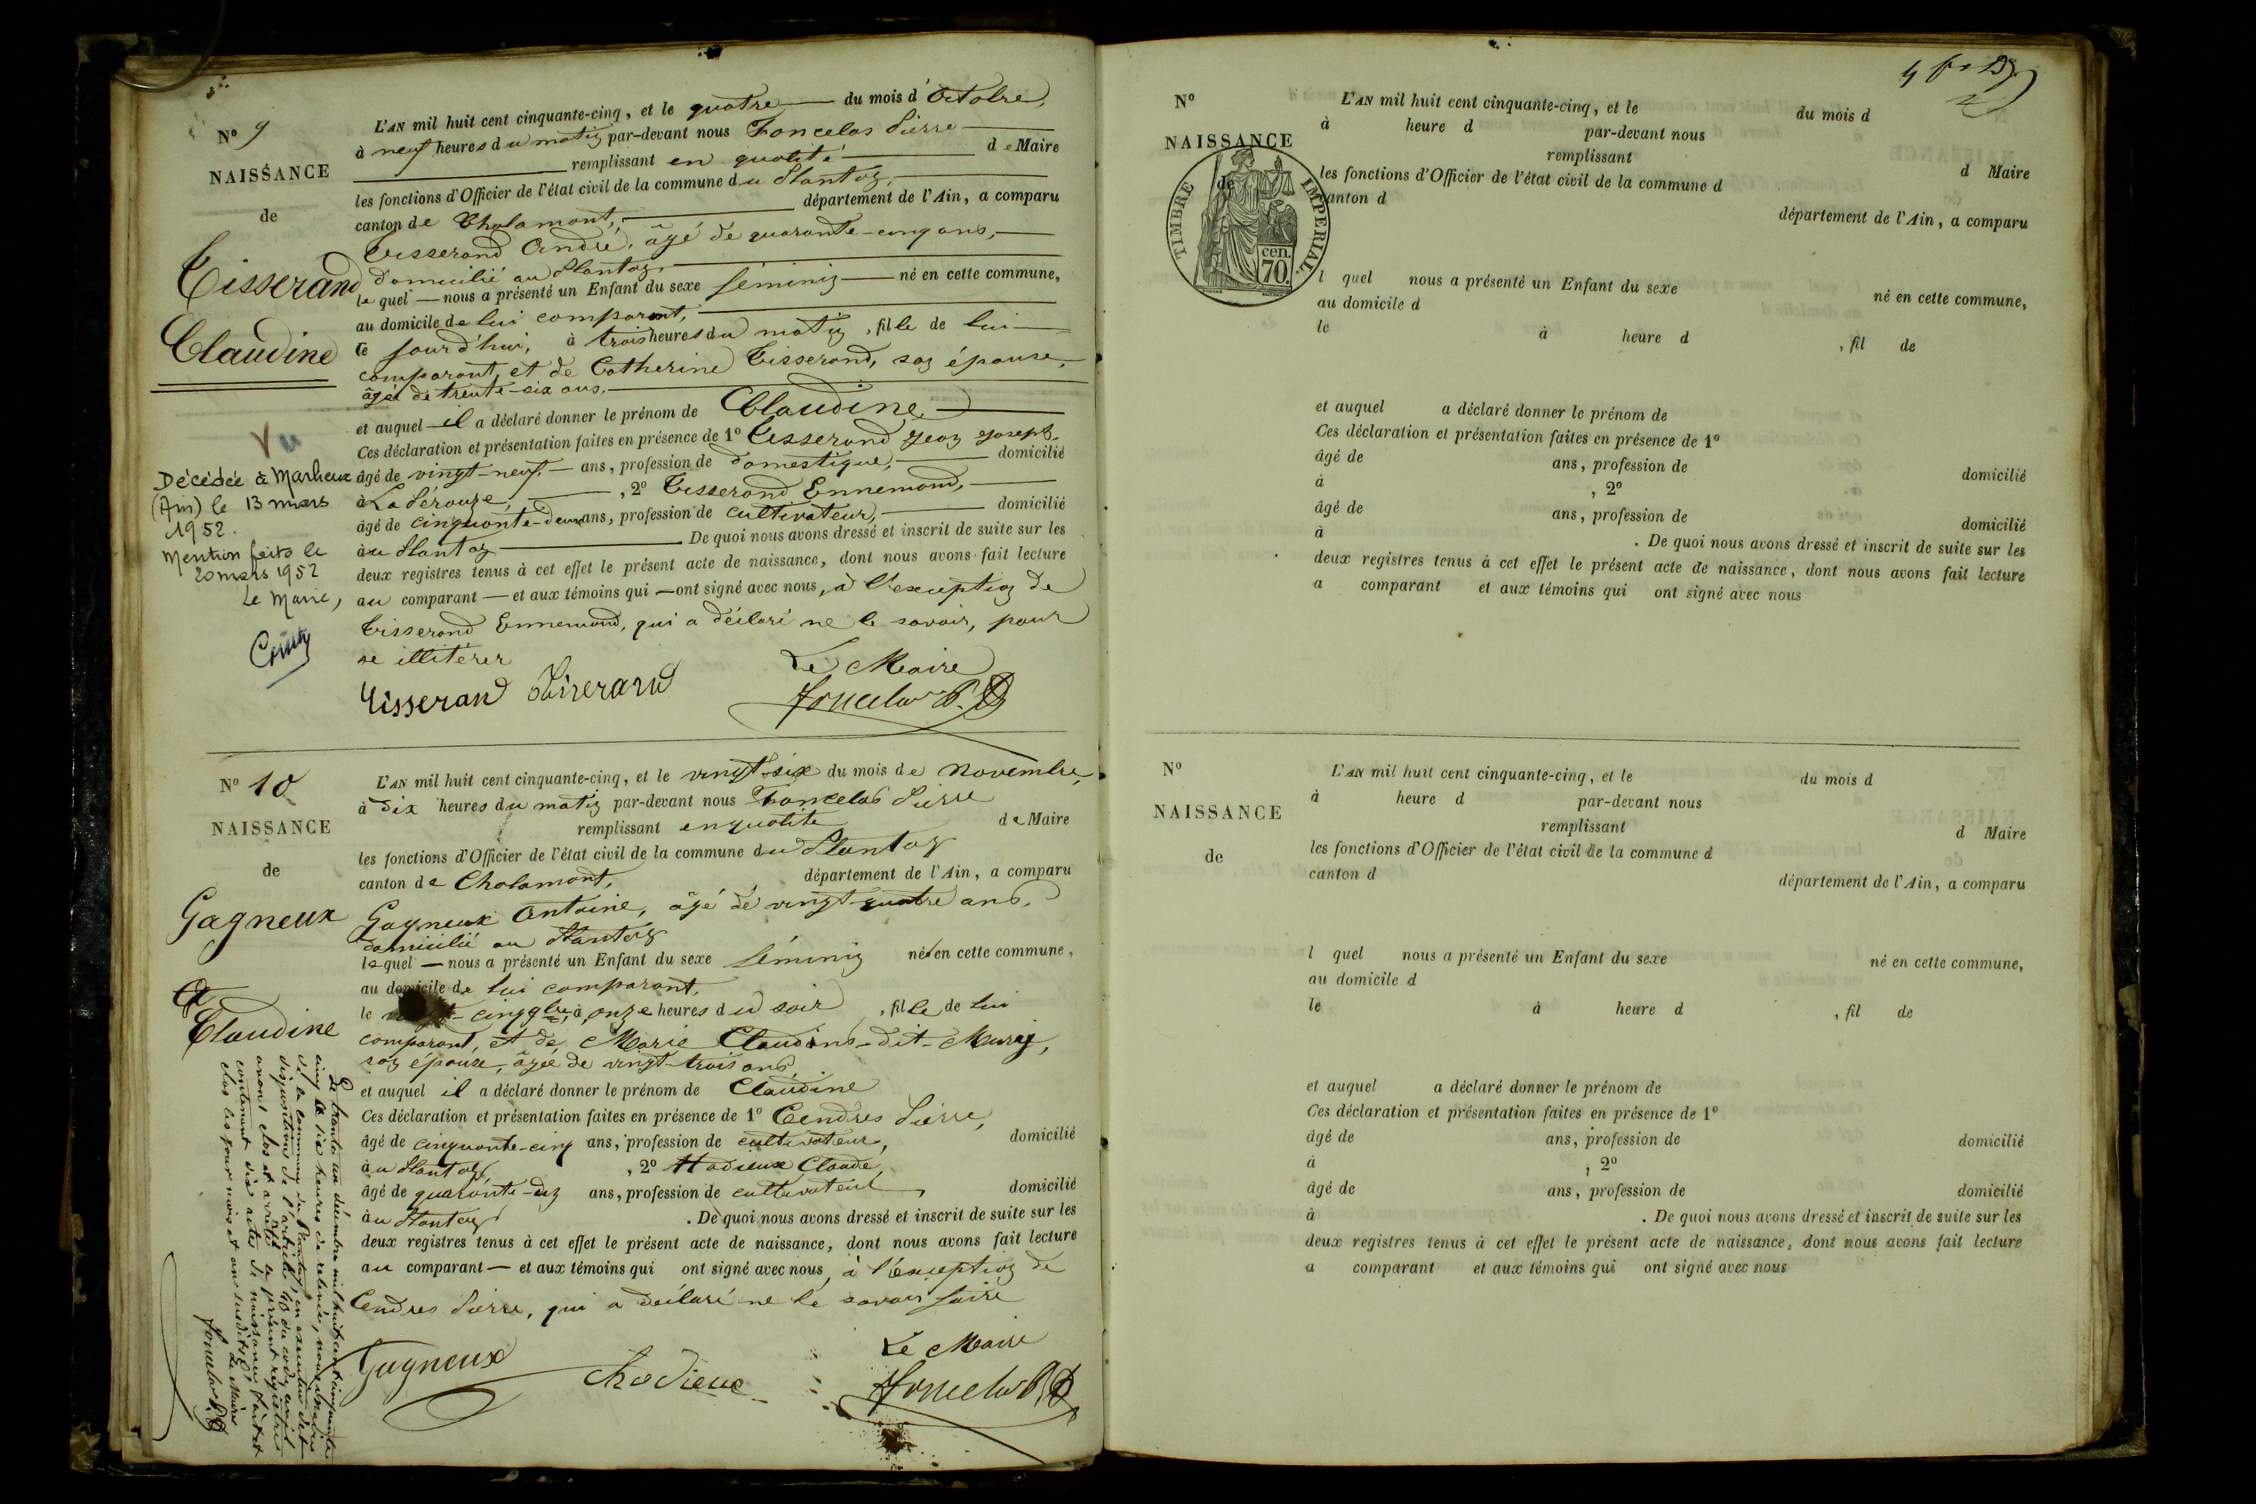 N° 9
NAISSANCE
de
Tisserand
Claudine
Vu
Décédée à Marlieux
(Ain) le 13 mars
1952.
Mention faite le
20 mars 1952
Le Maire,
L'AN mil huit cent cinquante-cinq, et le quatre du mois d'Octobre,
à neuf heures du matin par-devant nous Foncelas Pierre
remplissant en qualité de Maire
les fonctions d'Officier de l'état civil de la commune du Plantay,
canton de Chalamont, département de l'Ain, a comparu
Tisserand André, âgé de quarante-cinq ans,
domicilié au Plantay,
lequel — nous a présenté un Enfant du sexe féminin né en cette commune,
au domicile de lui comparant,
ce jourd'hui, à trois heures du matin, fille de lui
comparant, et de Catherine Tisserand, son épouse,
âgée de trente-six ans.
et auquel il a déclaré donner le prénom de Claudine
Ces déclaration et présentation faites en présence de 1° Tisserand Jean Joseph
âgé de vingt-neuf ans, profession de domestique, domicilié
à La Pérouze, 2° Tisserand Ennemond,
âgé de cinquante-deux ans, profession de cultivateur, domicilié
au Plantay De quoi nous avons dressé et inscrit de suite sur les
deux registres tenus à cet effet le présent acte de naissance, dont nous avons fait lecture
au comparant — et aux témoins qui — ont signé avec nous, à l'exception de
Tisserand Ennemond, qui a déclaré ne le savoir, pour
se illitérer
Le Maire
Tisseran Tisserand Foncelas P.
N° 10
NAISSANCE
de
Gagneux
Claudine
L'AN mil huit cent cinquante-cinq, et le vingt-six du mois de novembre,
à dix heures du matin par-devant nous Foncelas Pierre
remplissant en qualité de Maire
les fonctions d'Officier de l'état civil de la commune du Plantay
canton de Chalamont, département de l'Ain, a comparu
Gagneux Antoine, âgé de vingt-quatre ans,
domicilié au Plantay
lequel — nous a présenté un Enfant du sexe féminin né en cette commune,
au domicile de lui comparant,
le vingt-cinq à onze heures du soir, fille de lui
comparant, et de Marie Claudine-dit-Murj,
son épouse, âgée de vingt-trois ans
et auquel il a déclaré donner le prénom de Claudine
Ces déclaration et présentation faites en présence de 1° Cendres Pierre,
âgé de cinquante-cinq ans, profession de cultivateur, domicilié
au Plantay, 2° Hodieux Claude,
âgé de quarante-dez ans, profession de cultivateur, domicilié
au Plantay. De quoi nous avons dressé et inscrit de suite sur les
deux registres tenus à cet effet le présent acte de naissance, dont nous avons fait lecture
au comparant — et aux témoins qui ont signé avec nous, à l'exception de
Cendres Pierre, qui a déclaré ne le savoir faire
Le Maire
Gagneux Foncelas P.
Le trente un décembre mil huit cent cinquante
cinq à six heures de relevée, nous maire
de la commune du Plantay, en exécution des
dispositions de l'article 43 du code civil
avons clos et arrêté le présent registre
contenant dix actes de naissance fait et
clos les jour mois et an susdits
Le Maire
Foncelas P.
N°
NAISSANCE
de
TIMBRE IMPERIAL.
cen.
70.
L'AN mil huit cent cinquante-cinq, et le du mois d
à heure d par-devant nous
remplissant d Maire
les fonctions d'Officier de l'état civil de la commune d
canton d département de l'Ain, a comparu
l quel nous a présenté un Enfant du sexe né en cette commune,
au domicile d
le à heure d , fil de
et auquel a déclaré donner le prénom de
Ces déclaration et présentation faites en présence de 1°
âgé de ans, profession de domicilié
à , 2°
âgé de ans, profession de domicilié
à . De quoi nous avons dressé et inscrit de suite sur les
deux registres tenus à cet effet le présent acte de naissance, dont nous avons fait lecture
a comparant et aux témoins qui ont signé avec nous
N°
NAISSANCE
de
L'AN mil huit cent cinquante-cinq, et le du mois d
à heure d par-devant nous
remplissant d Maire
les fonctions d'Officier de l'état civil de la commune d
canton d département de l'Ain, a comparu
l quel nous a présenté un Enfant du sexe né en cette commune,
au domicile d
le à heure d , fil de
et auquel a déclaré donner le prénom de
Ces déclaration et présentation faites en présence de 1°
âgé de ans, profession de domicilié
à , 2°
âgé de ans, profession de domicilié
à . De quoi nous avons dressé et inscrit de suite sur les
deux registres tenus à cet effet le présent acte de naissance, dont nous avons fait lecture
a comparant et aux témoins qui ont signé avec nous